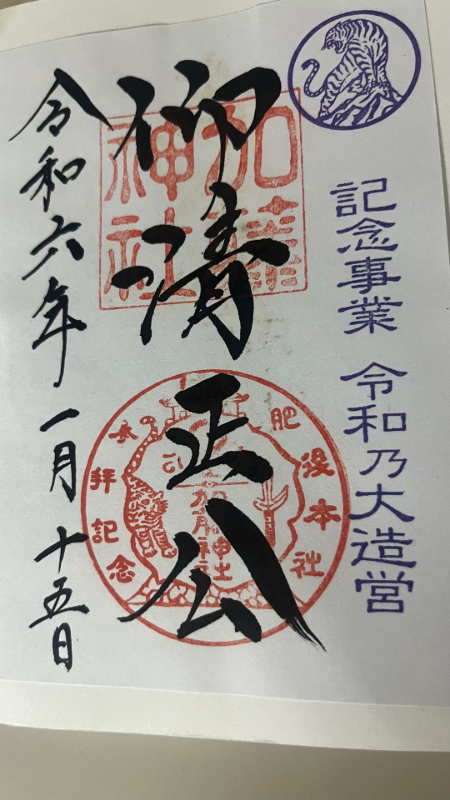 記念事業 令和乃大造営
仰清正公
加藤
神社
肥後本社
加藤神社
参拝記念
令和六年一月十五日